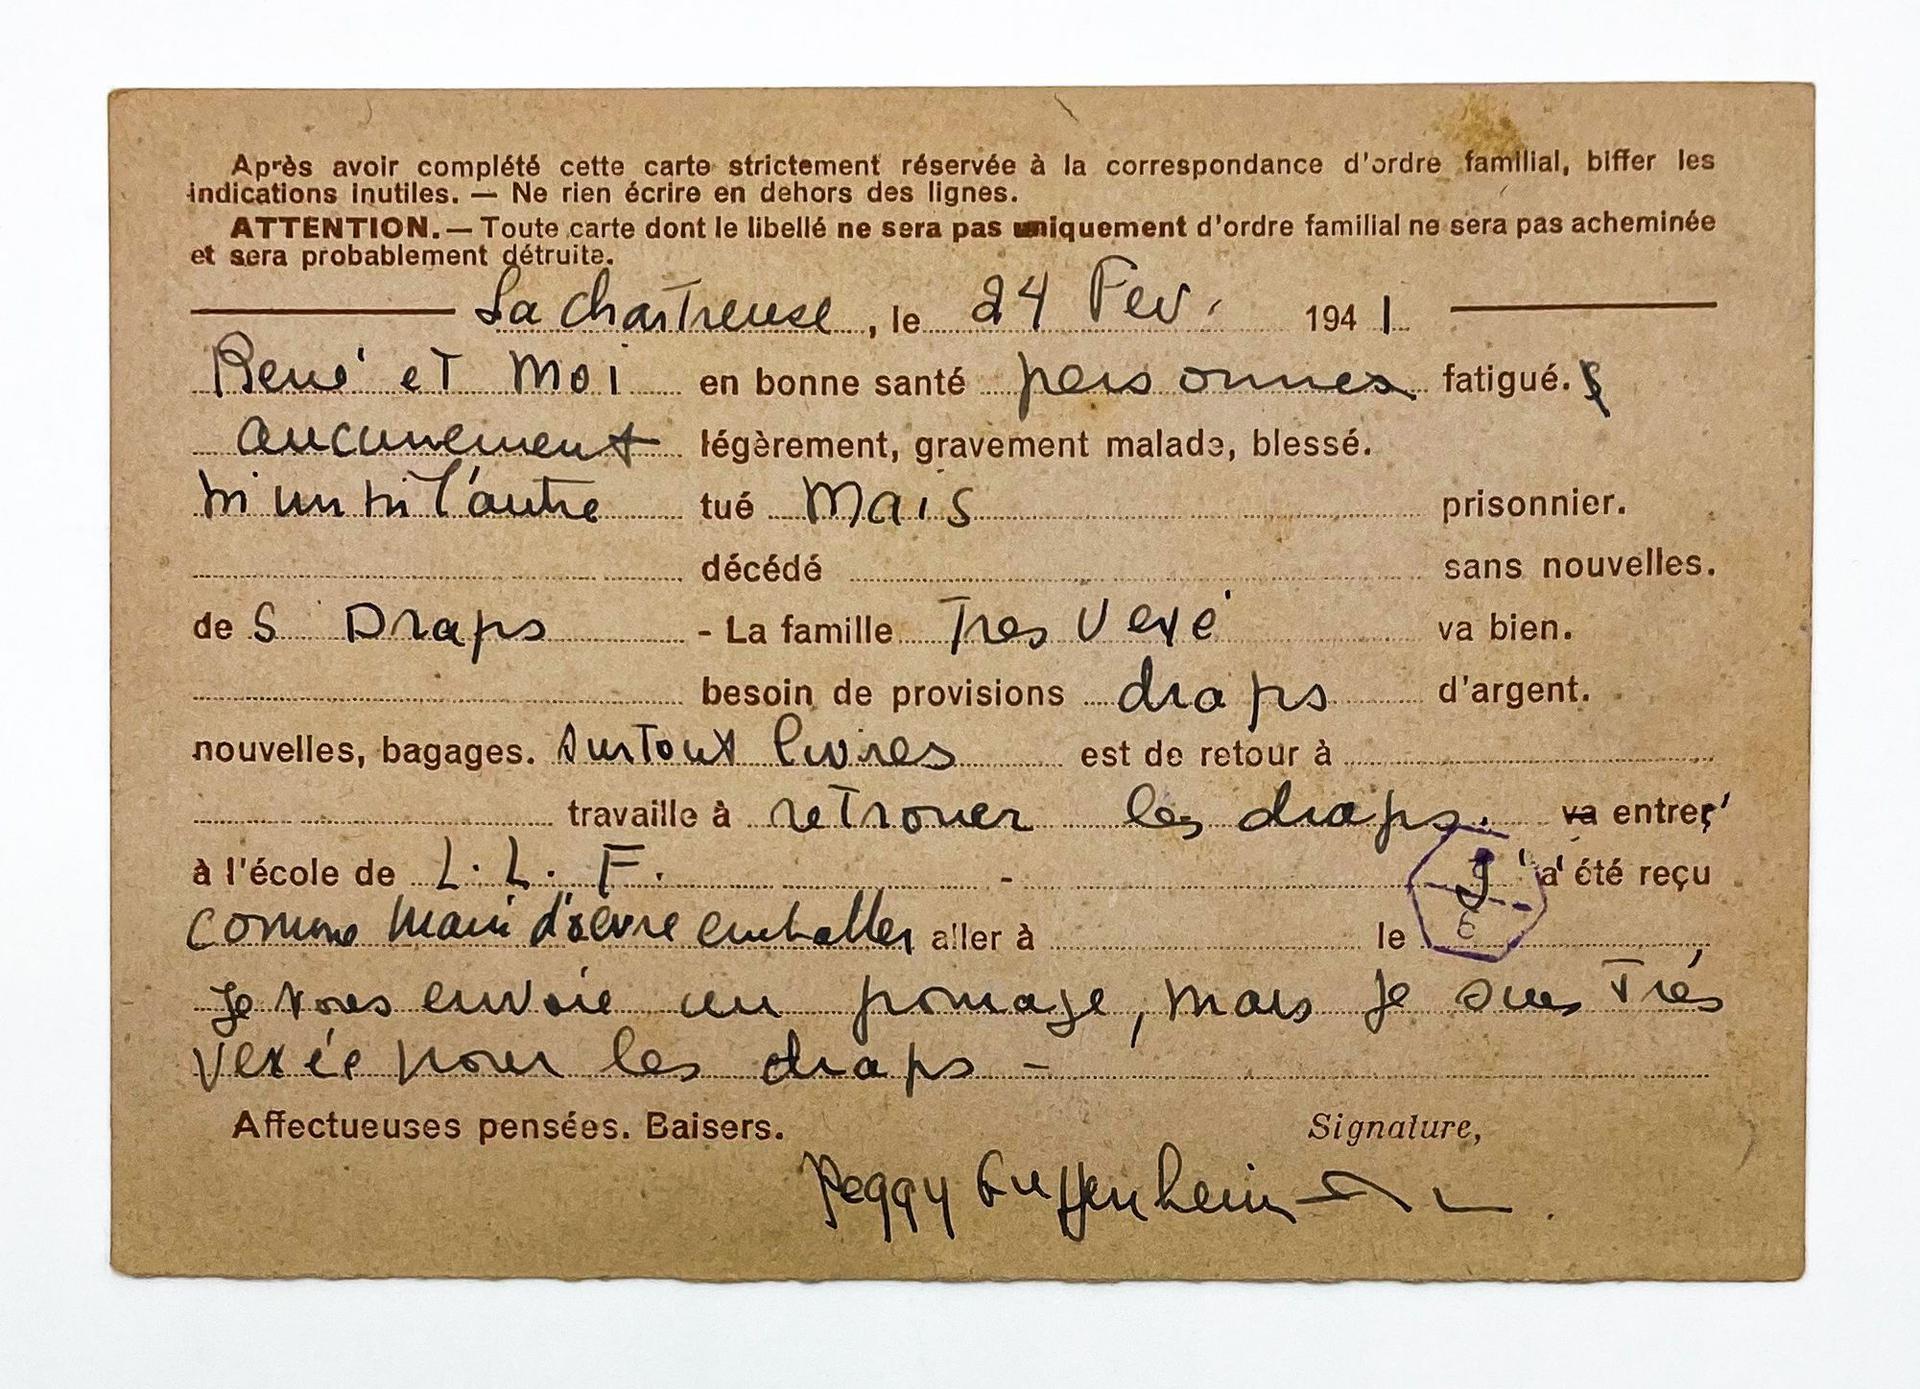 Après avoir complété cette carte strictement réservée à la correspondance d'ordre familial, biffer les
indications inutiles. — Ne rien écrire en dehors des lignes.
ATTENTION. — Toute carte dont le libellé ne sera pas uniquement d'ordre familial ne sera pas acheminée
et sera probablement détruite.
La Chartreuse, le 24 Fev. 1941
René et Moi en bonne santé personnes fatigué.s
aucunement légèrement, gravement malade, blessé.
ni un ni l'autre tué Mais prisonnier.
décédé sans nouvelles.
de S Draps - La famille Tres Vexé va bien.
besoin de provisions draps d'argent.
nouvelles, bagages. surtout livres est de retour à
travaille à retrouver les draps. va entrer
à l'école de L. L. F. - J'a été reçu
comme main d'oevre emballer aller à le
6
Je vous envoie un fromage, mais je suis Trés
vexée pour les draps -
Affectueuses pensées. Baisers. Signature,
Peggy Guggenheim